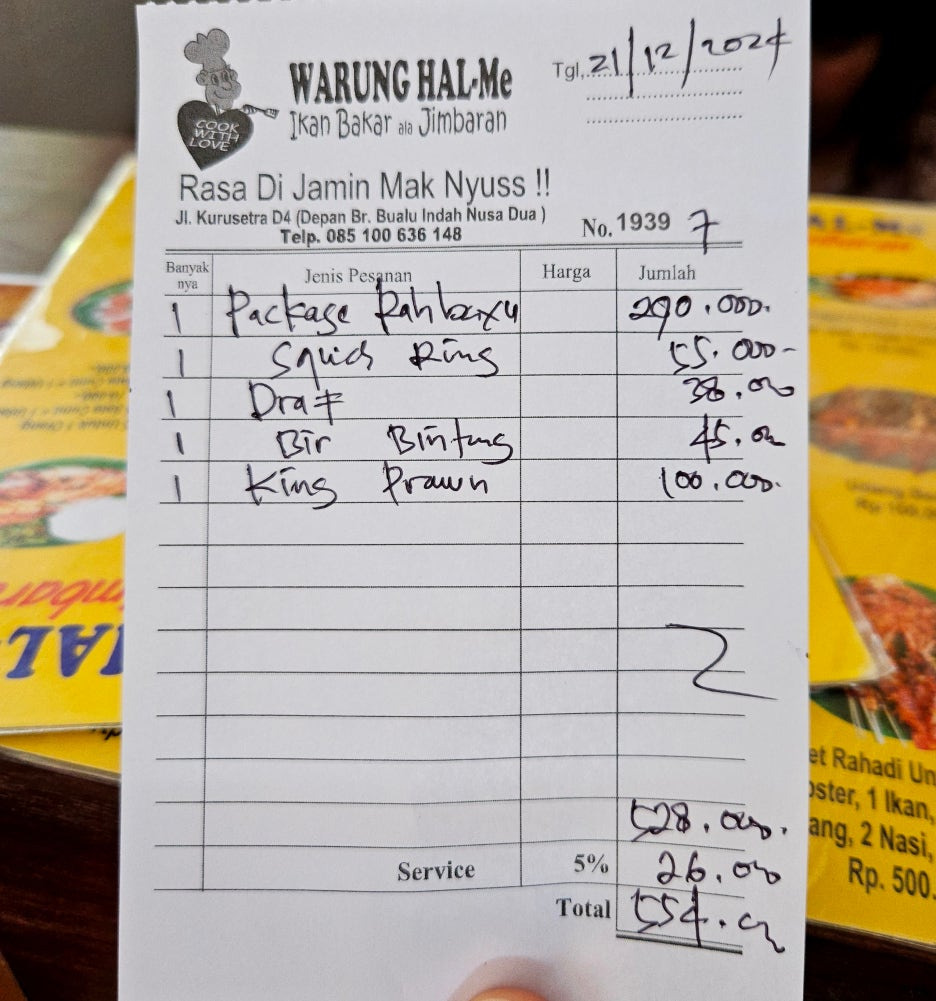 COOK
WITH
LOVE
WARUNG HAL-Me
Ikan Bakar ala Jimbaran
Tgl, 21/12/2024
Rasa Di Jamin Mak Nyuss !!
Jl. Kurusetra D4 (Depan Br. Bualu Indah Nusa Dua )
Telp. 085 100 636 148
No. 1939 7
Banyak nya Jenis Pesanan Harga Jumlah
1 Package 290.000.
1 Squid Ring 55.000-
1 Draf 38.000
1 Bir Bintang 45.000
1 King Prawn 100.000.
528.000.
Service 5% 26.000
Total 554.000
et Rahadi Un
ster, 1 Ikan,
ang, 2 Nasi,
Rp. 500.